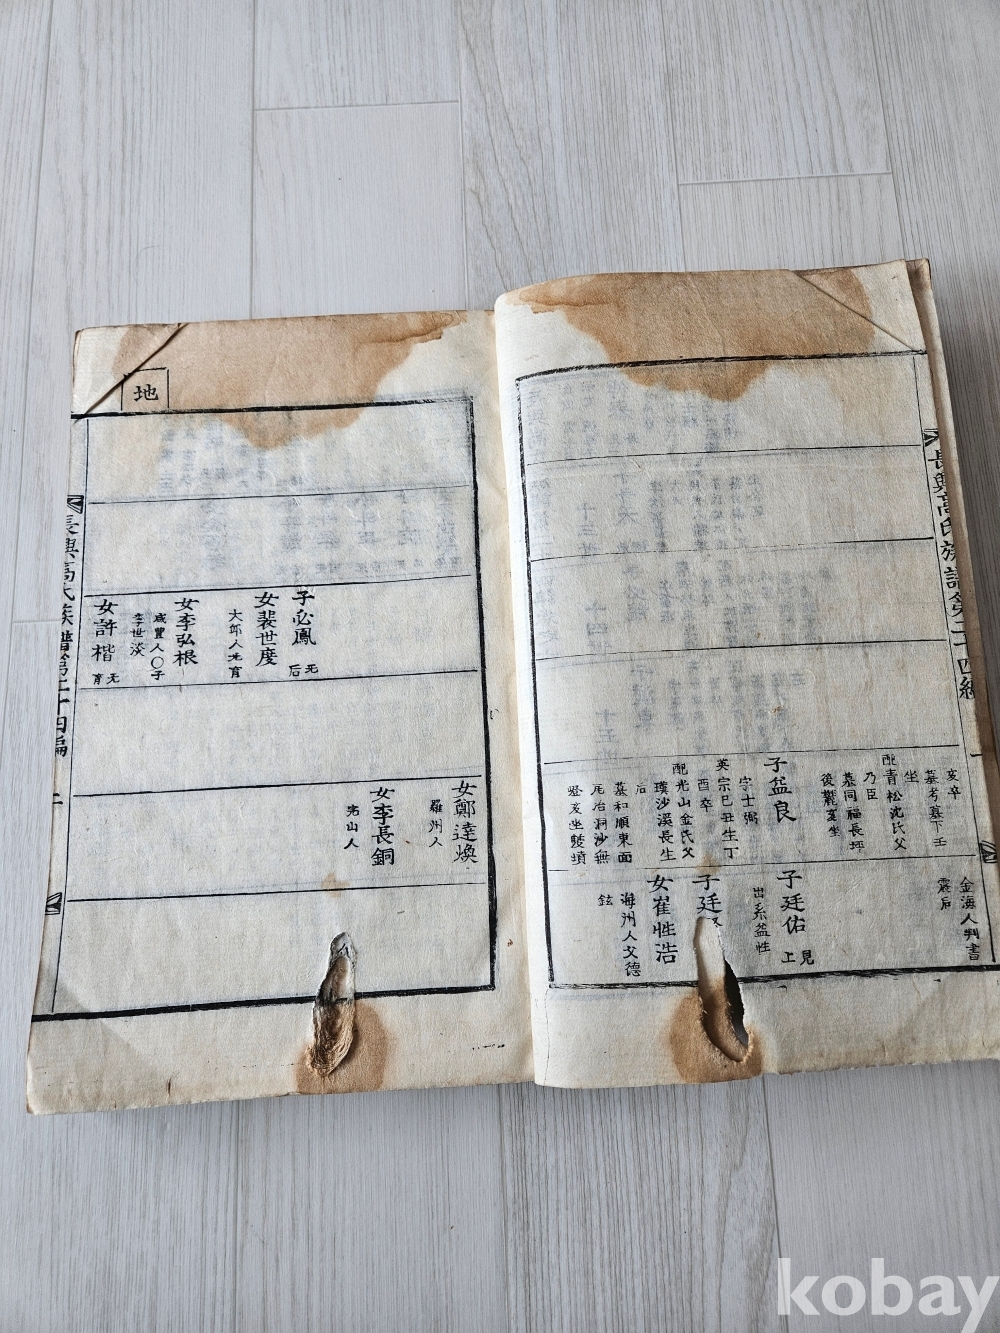 長興高氏族譜第二十四編
亥卒
墓考墓下壬
坐
配青松沈氏父
乃臣
墓同福長坪
後麓亥坐
子益良
字士弼
英宗己丑生丁
酉卒
配光山金氏父
璞沙溪長生
后
墓和順東面
尾冶洞沙無
登亥坐雙墳
金海人判書
震后
子廷佑
見上
出系益性
子廷
女崔性浩
海州人父德
鉉
子必鳳
无后
女裴世度
大邱人无育
女李弘根
咸豊人〇子
李世淡
女許楷
无育
女鄭達煥
羅州人
女李長銅
光山人
地
長興高氏族譜第二十四編
二
kobay